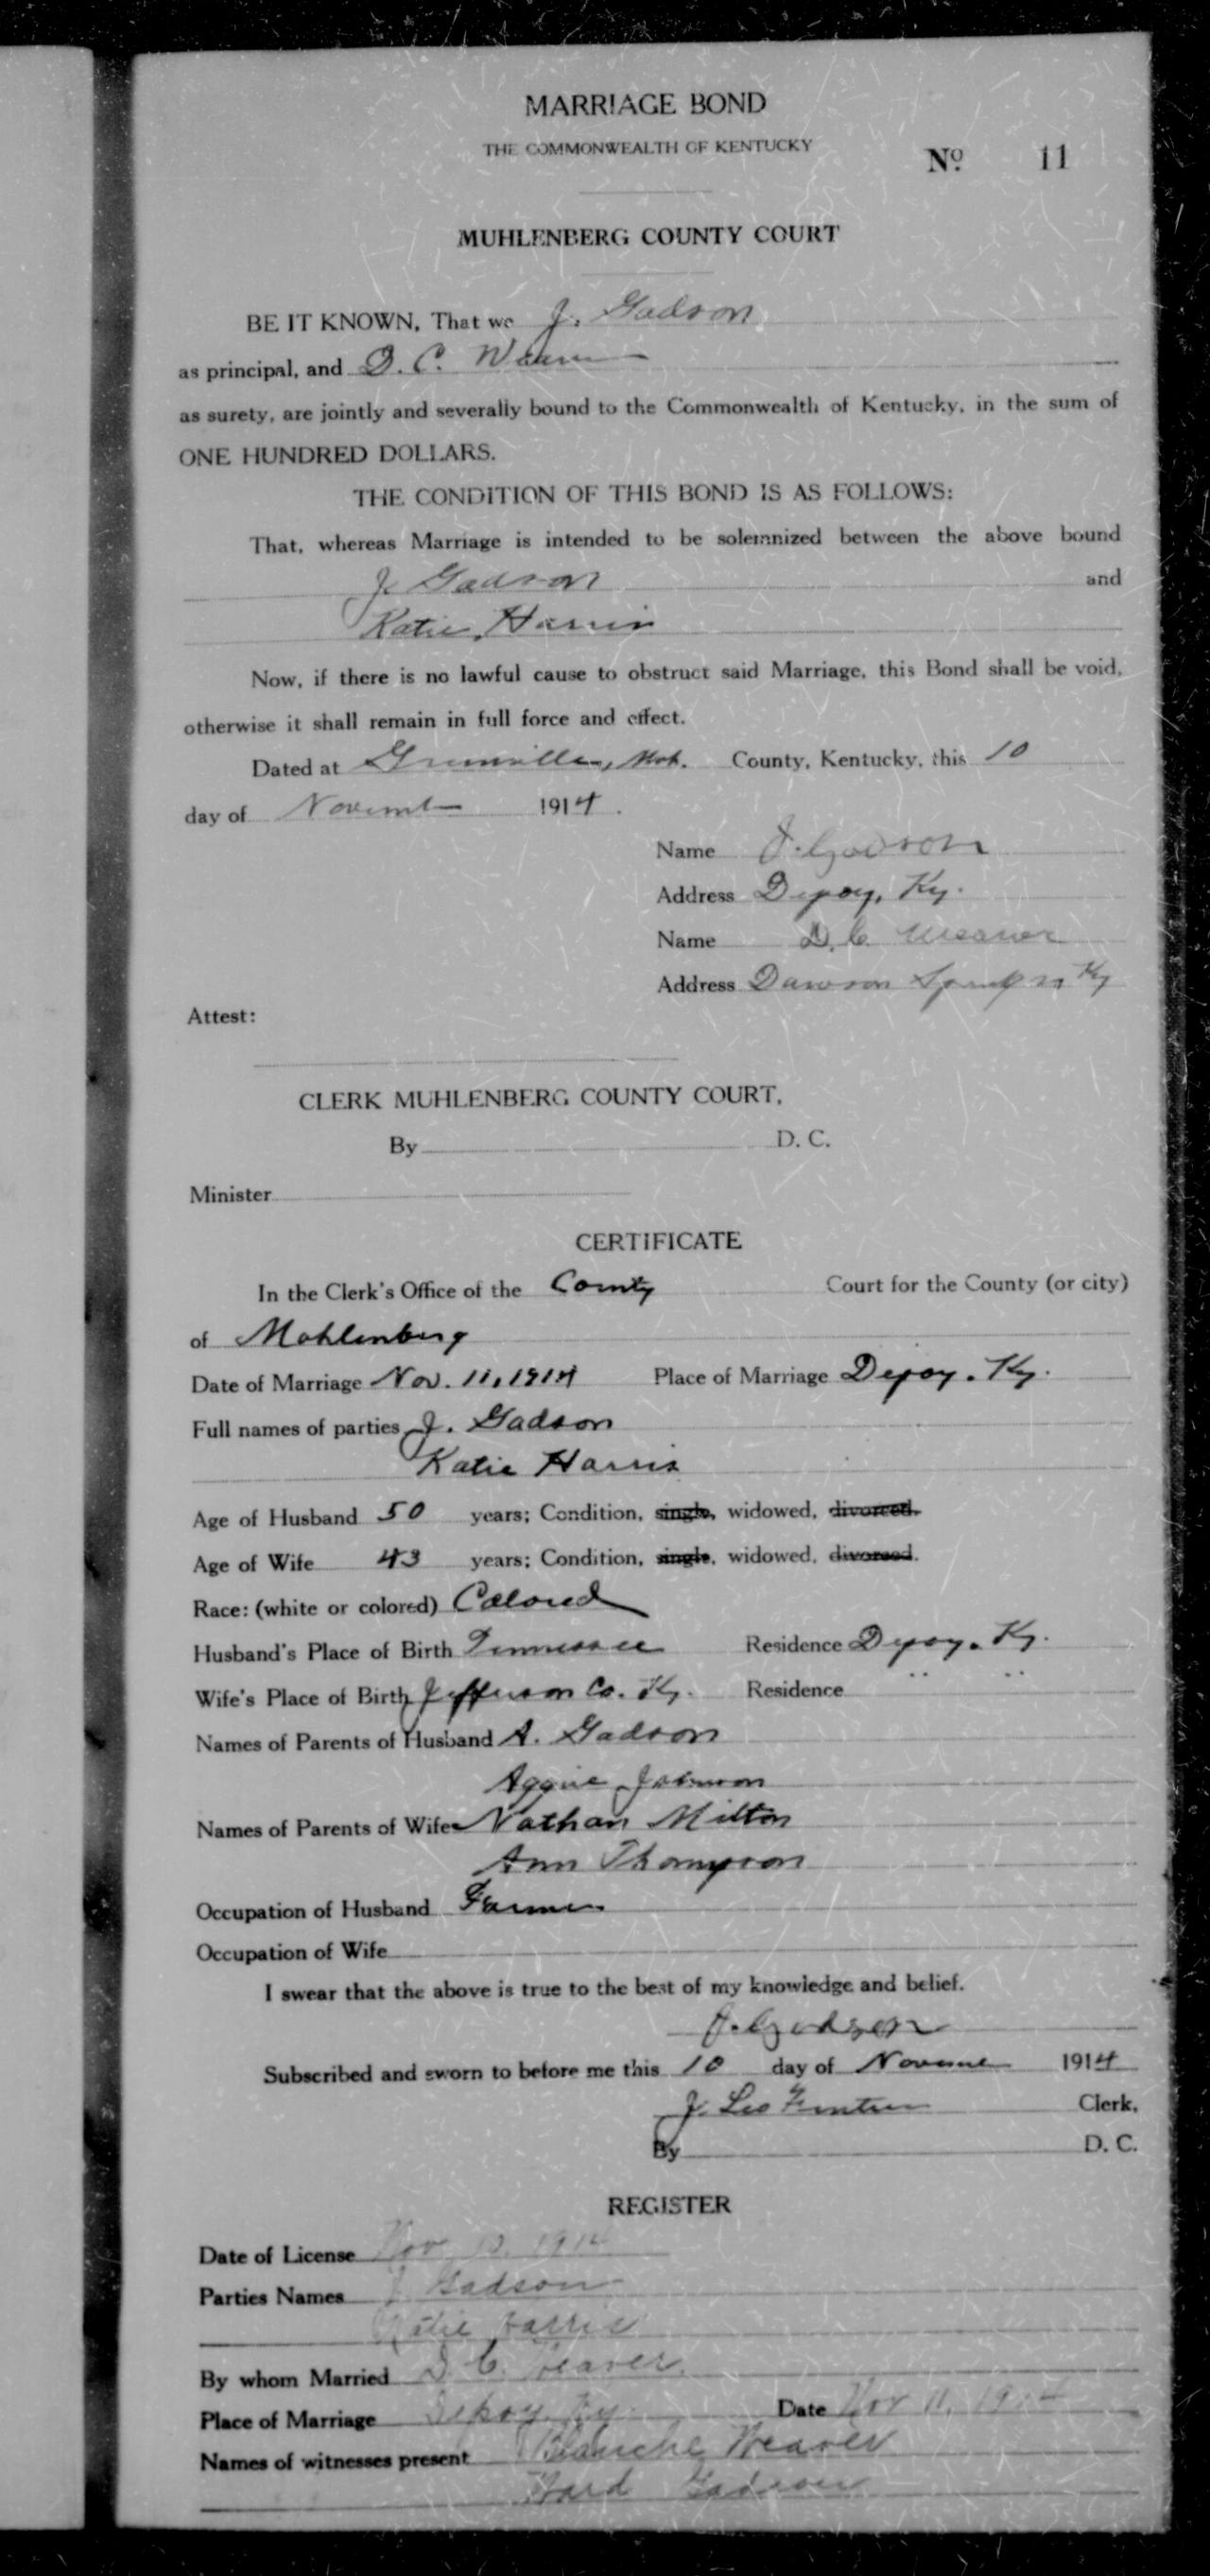 MARRIAGE BOND
THE COMMONWEALTH OF KENTUCKY
No. 11
MUHLENBERG COUNTY COURT
BE IT KNOWN, That we J. Gadson
as principal, and D. C. Weaver
as surety, are jointly and severally bound to the Commonwealth of Kentucky, in the sum of
ONE HUNDRED DOLLARS.
THE CONDITION OF THIS BOND IS AS FOLLOWS:
That, whereas Marriage is intended to be solemnized between the above bound
J. Gadson and
Katie Harris
Now, if there is no lawful cause to obstruct said Marriage, this Bond shall be void,
otherwise it shall remain in full force and effect.
Dated at Greenville, Muh. County, Kentucky, this 10
day of November 1914.
Name J. Gadson
Address Depoy, Ky.
Name D. C. Weaver
Address Dawson Springs Ky
Attest:
CLERK MUHLENBERG COUNTY COURT,
By D. C.
Minister
CERTIFICATE
In the Clerk's Office of the County Court for the County (or city)
of Muhlenberg
Date of Marriage Nov. 11, 1914 Place of Marriage Depoy, Ky.
Full names of parties J. Gadson
Katie Harris
Age of Husband 50 years; Condition, single, widowed, divorced.
Age of Wife 43 years; Condition, single, widowed, divorced.
Race: (white or colored) Colored
Husband's Place of Birth Tennessee Residence Depoy, Ky.
Wife's Place of Birth Jefferson Co. Ky. Residence " "
Names of Parents of Husband A. Gadson
Aggie Johnson
Names of Parents of Wife Nathan Milton
Ann Thompson
Occupation of Husband Farmer
Occupation of Wife
I swear that the above is true to the best of my knowledge and belief.
J. Gadson
Subscribed and sworn to before me this 10 day of November 1914
J. Leo Clerk,
By D. C.
REGISTER
Date of License Nov 10, 1914
Parties Names J Gadson
Katie Harris
By whom Married D. C. Weaver
Place of Marriage Depoy Ky. Date Nov 11, 1914
Names of witnesses present Blanche Weaver
Gadson